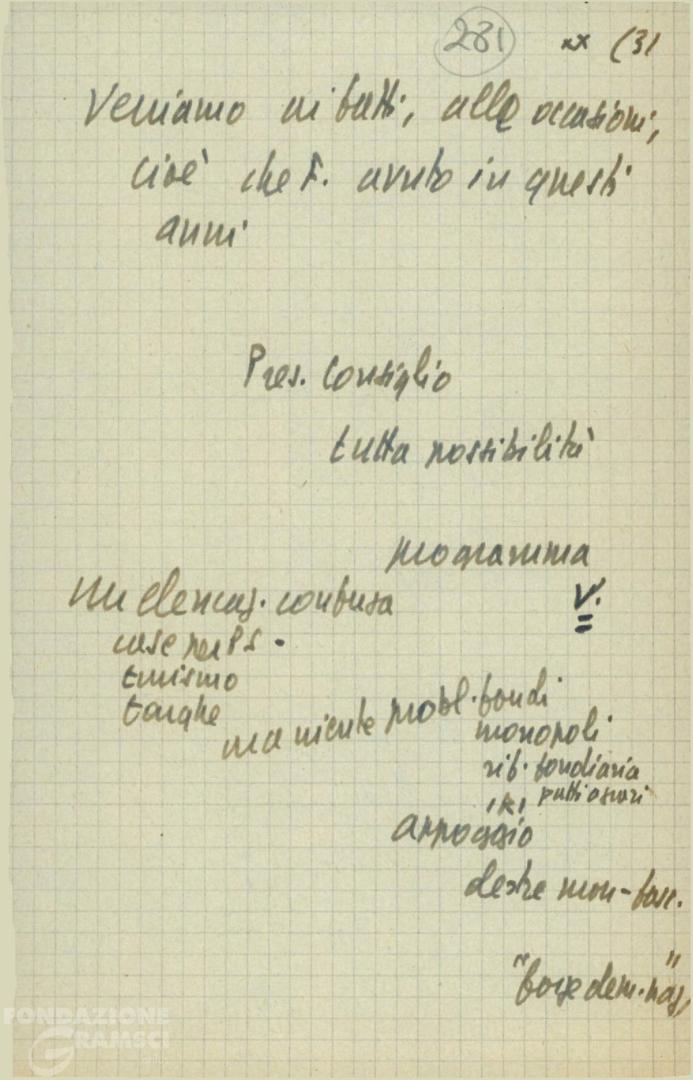 281 xx (31
Veniamo ai fatti, alle occasioni,
cioè che F. avuto in questi
anni
Pres. Consiglio
tutta possibilità
programma
un elencaz. confusa V.
case per PS -
turismo
targhe
ma niente probl. fondi
monopoli
rif. fondiaria
IRI patti agrari
appoggio
destre mon-fasc.
"forze dem. naz."
FONDAZIONE
GRAMSCI